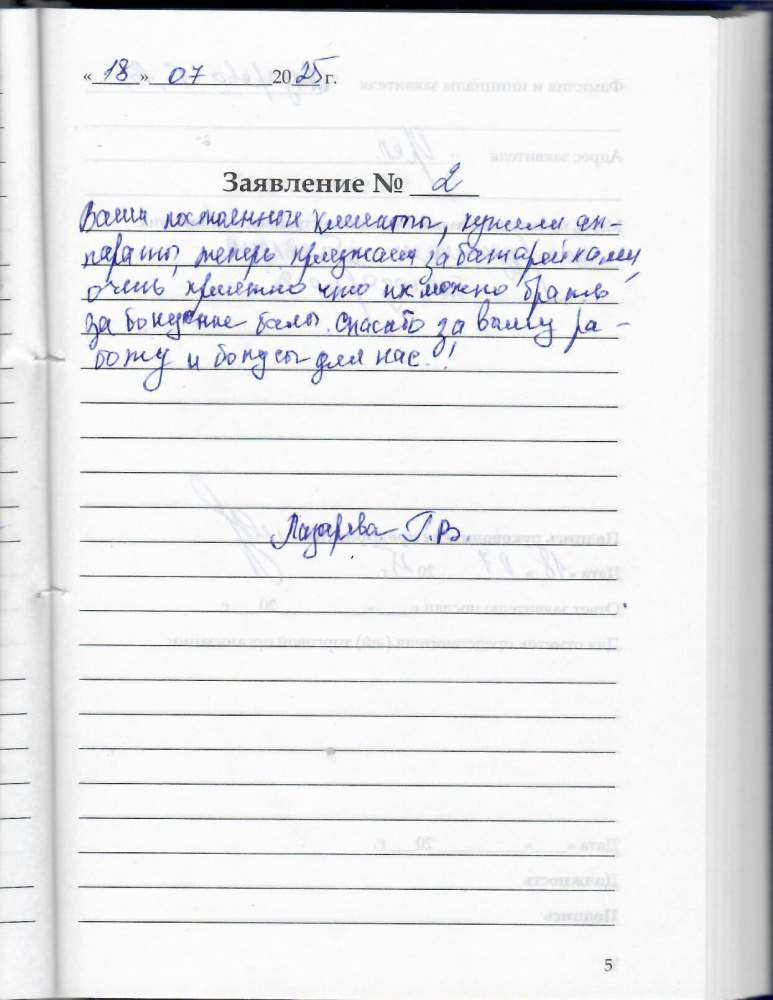 «18» 07 2025 г.
Заявление № 2
Ваши постоенные клиенты, купили ап-
параты, теперь приезжаем за батарейками,
очень приятно что их можно брать
за бонусные балы. Спасибо за вашу ра-
боту и бонусы для нас.!
Лазарева Г.В.
5